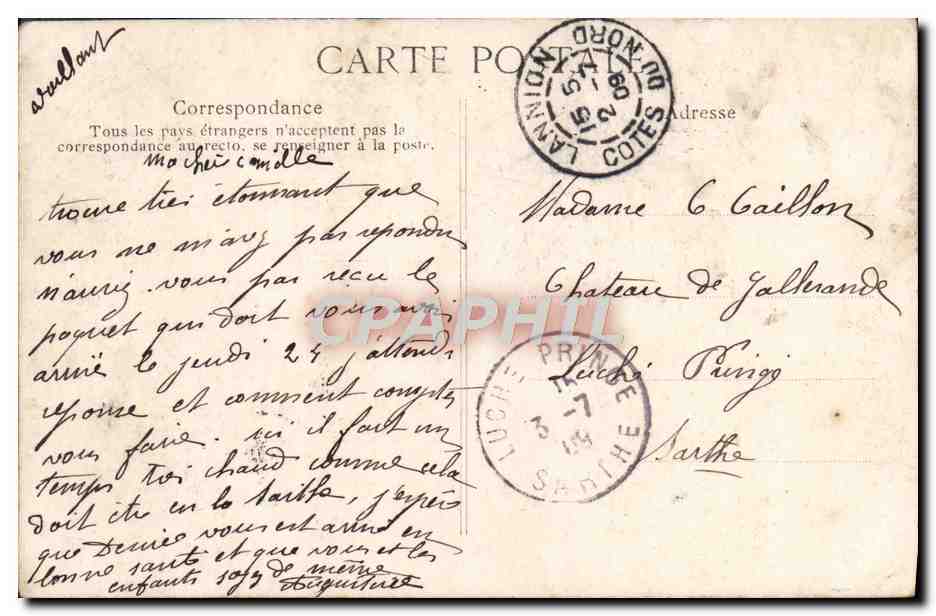 Vaillant
CARTE POSTALE
Correspondance
Tous les pays étrangers n'acceptent pas la
correspondance au recto, se renseigner à la poste.
Adresse
LANNION
COTES DU NORD
15 5
2 -7
09
ma cher camille
trouve tres étonnant que
vous ne m'avez pas repondu
n'auriez vous pas reçu le
paquet qui doit vous avoir
arrivé le jeudi 24 j'attends
reponse et comment comptez
vous faire. ici il fait un
temps tres chaud comme cela
doit être en la
que vous est arrivé en
bonne santé et que vous et les
enfants soyez de même
Madame C Caillon
Chateau de Gallerande
Luché Pringé
Sarthe
LUCHÉ PRINGÉ
3 -7
09
SARTHE
CPAPHIL